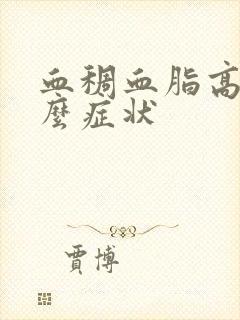 血稠血脂高
麼症状
賈博